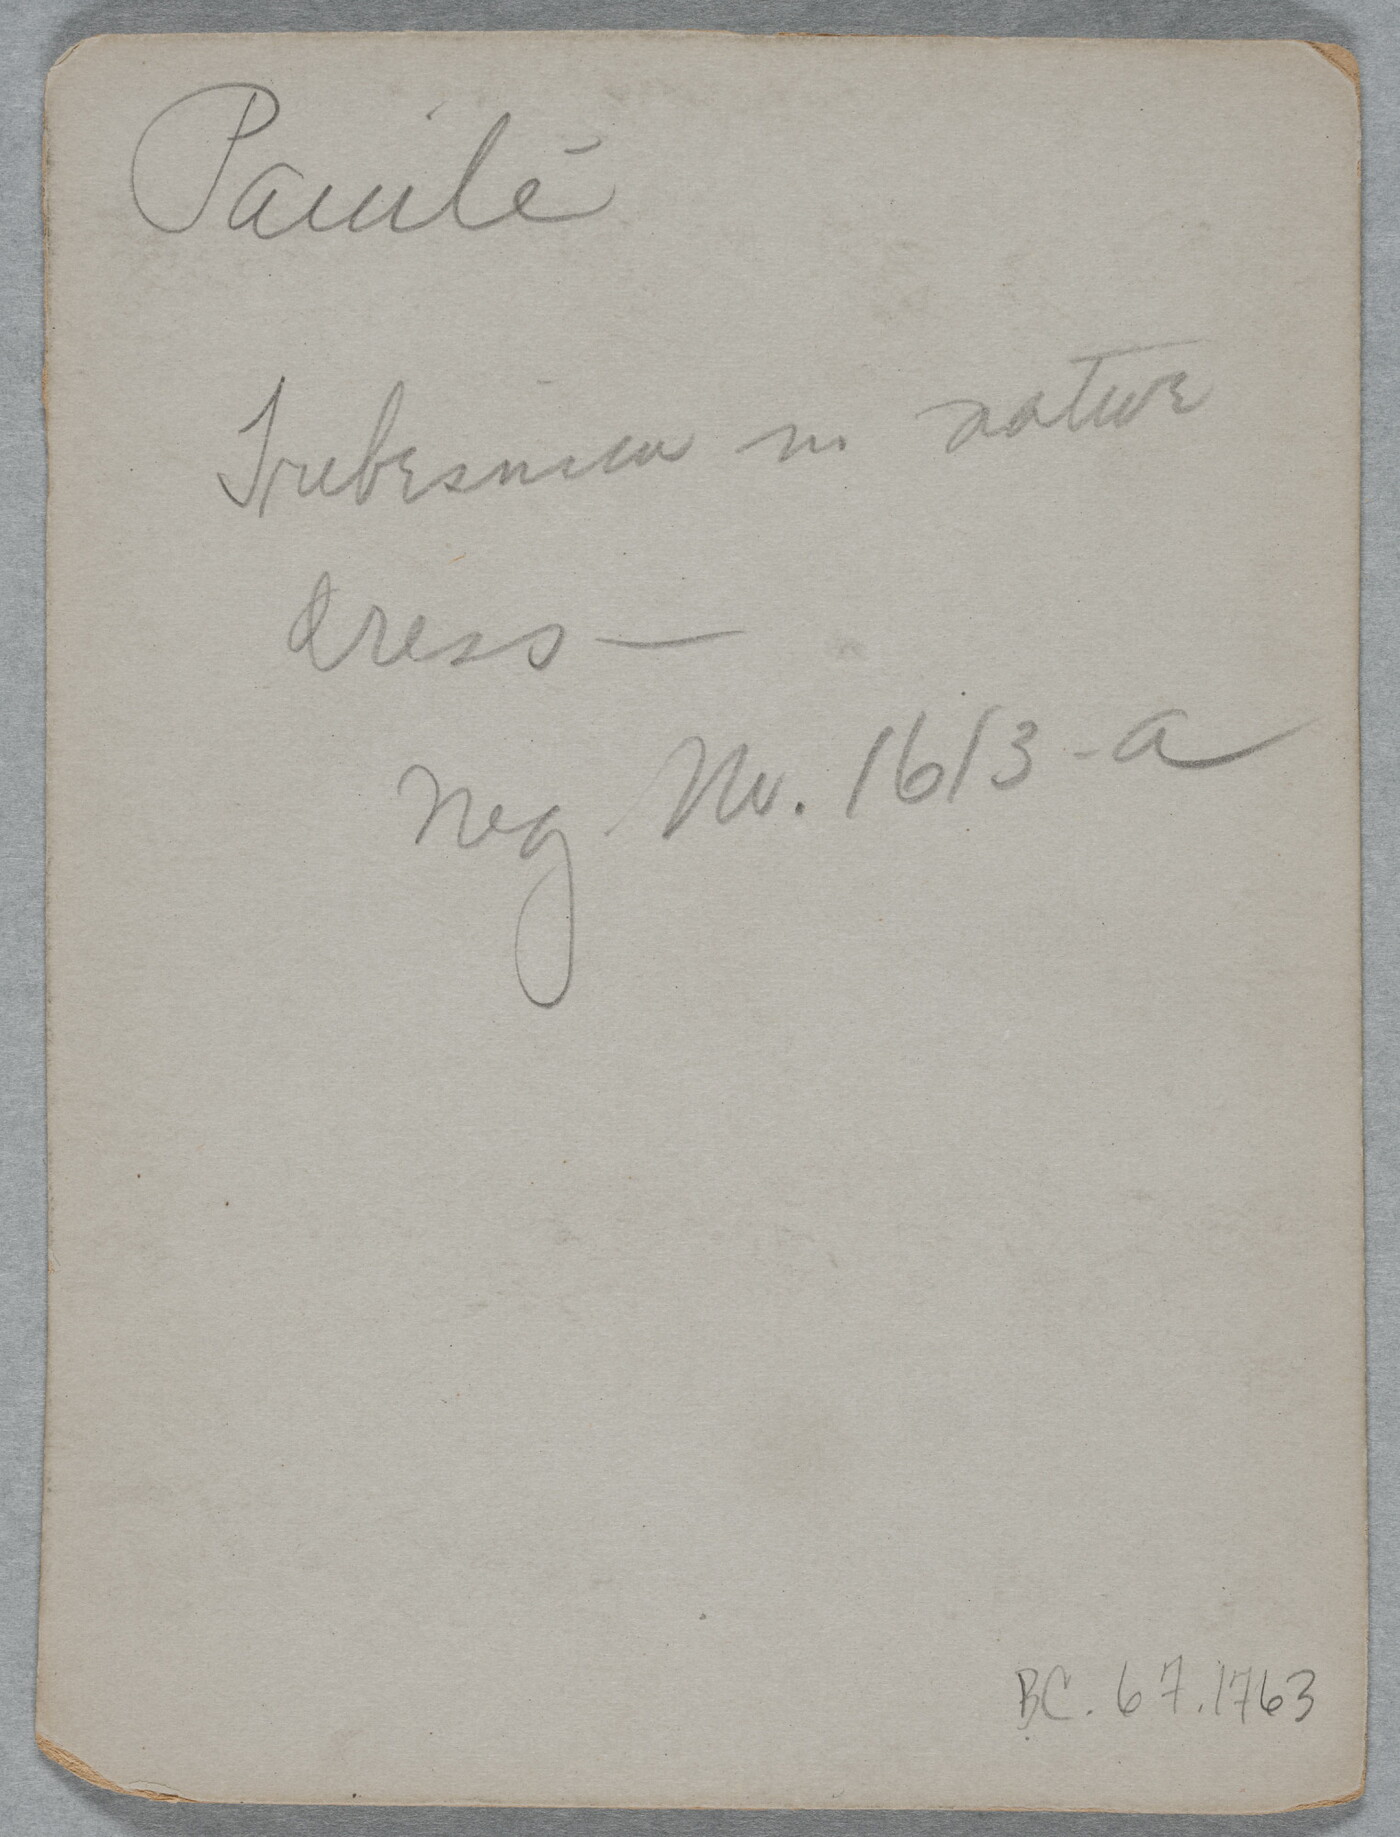 Paiute
Tribesmen in native
dress —
Neg No. 1613-a
BC. 67.1763